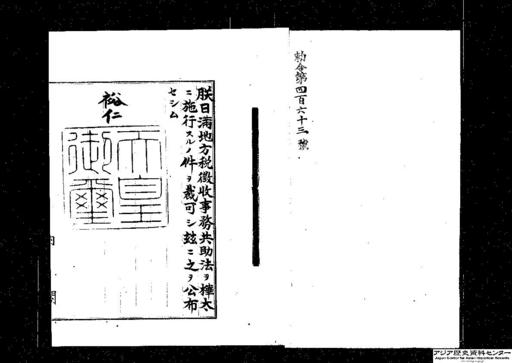 勅令第四百六十三號
朕日滿地方税徴收事務共助法ヲ樺太
ニ施行スルノ件ヲ裁可シ玆ニ之ヲ公布
セシム
裕仁
天皇
御璽
内閣
アジア歴史資料センター
Japan Center for Asian Historical Records